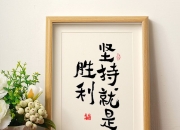 坚持就是
胜利